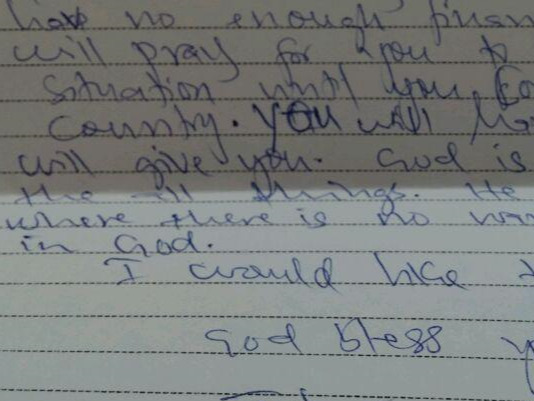 have no enough finan
will pray for you to
situation until you
County. You will
will give you. God is
the all things. He
where there is no
in God.
I would like
God bless y